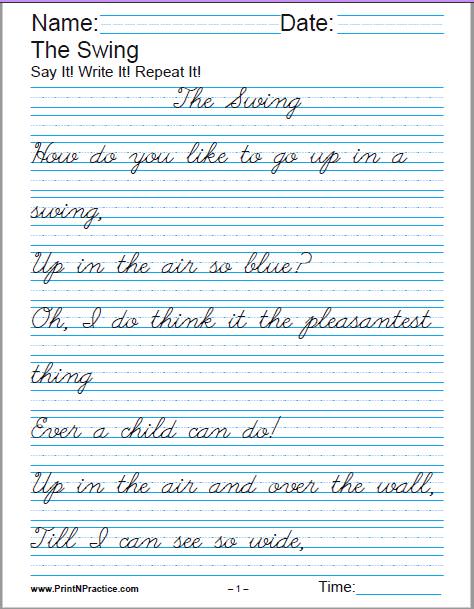 Name: Date:
The Swing
Say It! Write It! Repeat It!
The Swing
How do you like to go up in a
swing,
Up in the air so blue?
Oh, I do think it the pleasantest
thing
Ever a child can do!
Up in the air and over the wall,
Till I can see so wide,
www.PrintNPractice.com – 1 – Time: